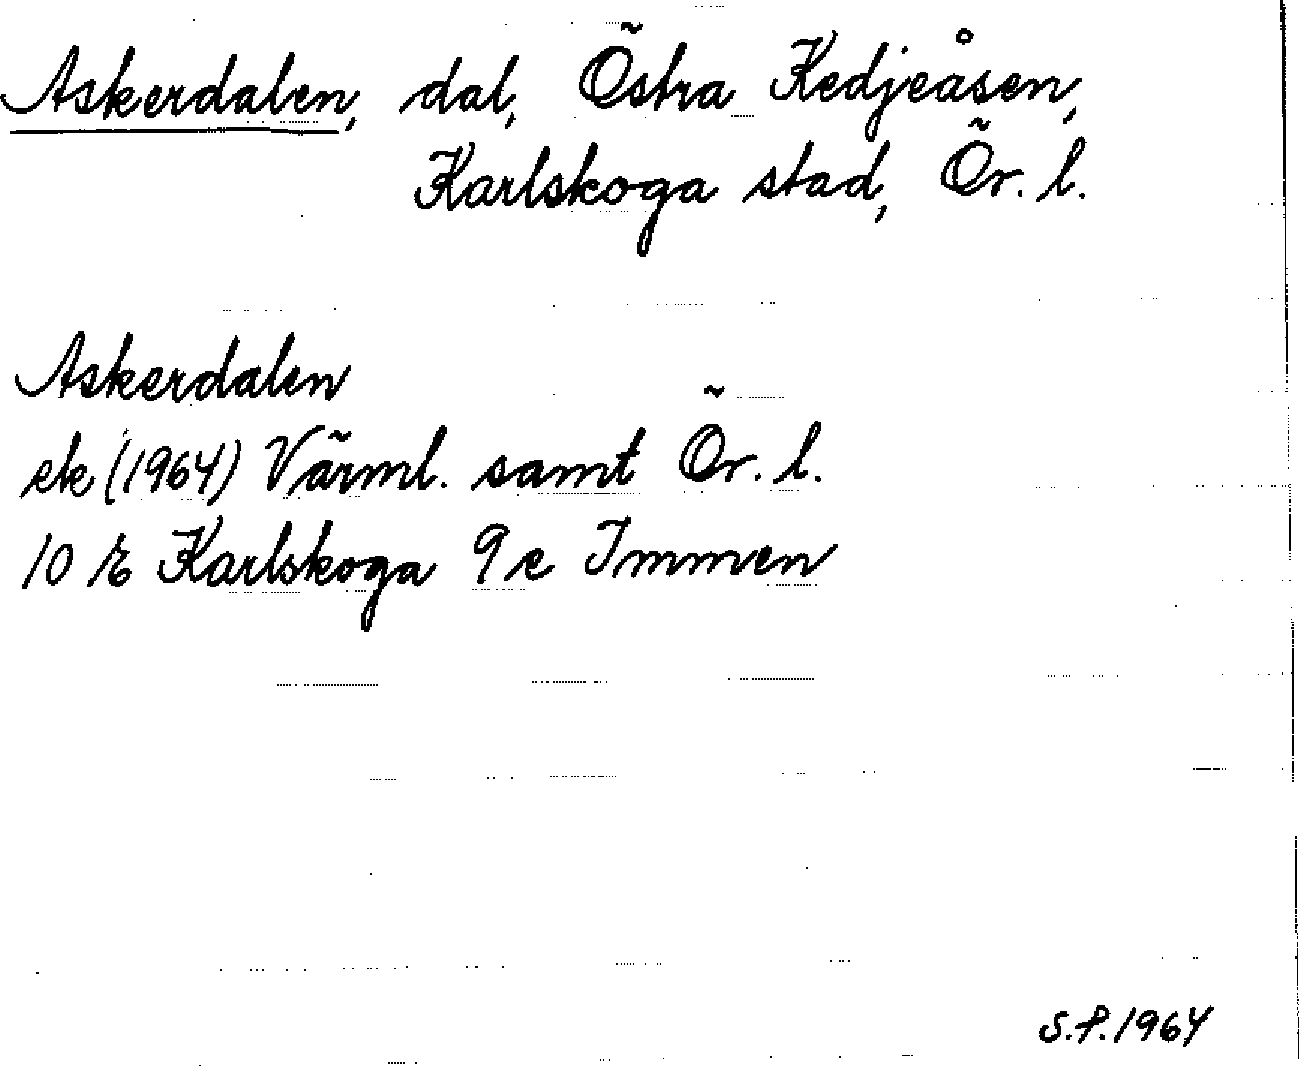 Askerdalen, dal, Östra Kedjeåsen,
Karlskoga stad, Ör. l.
Askerdalen
ek (1964) Värml. samt Ör. l.
10 E Karlskoga 9e Immen
S.F.1964